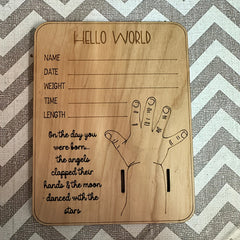 HELLO WORLD
NAME
DATE
WEIGHT
TIME
LENGTH
On the day you
were born...
the angels
clapped their
hands & the moon
danced with the
stars